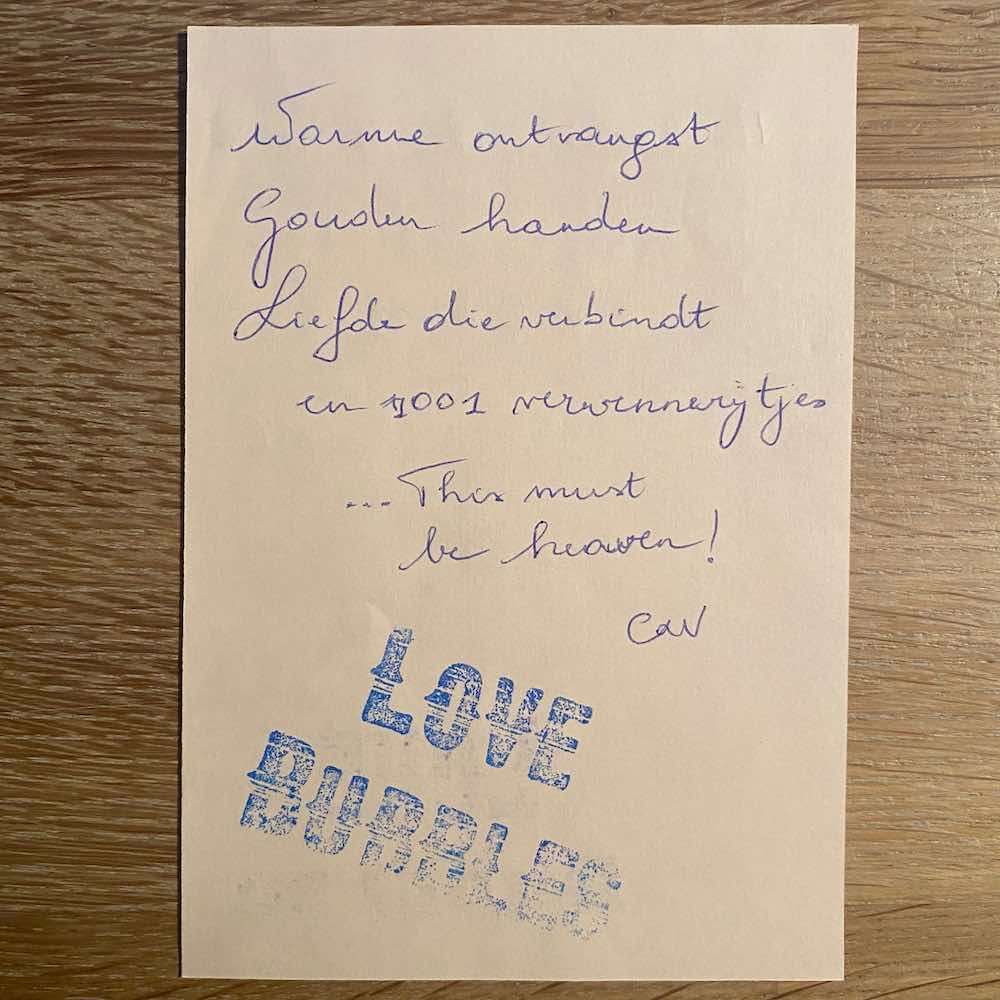 Warme ontvangst
Gouden handen
Liefde die verbindt
en 1001 verwennerijtjes
...This must
be heaven!
CaV
LOVE
BUBBLES